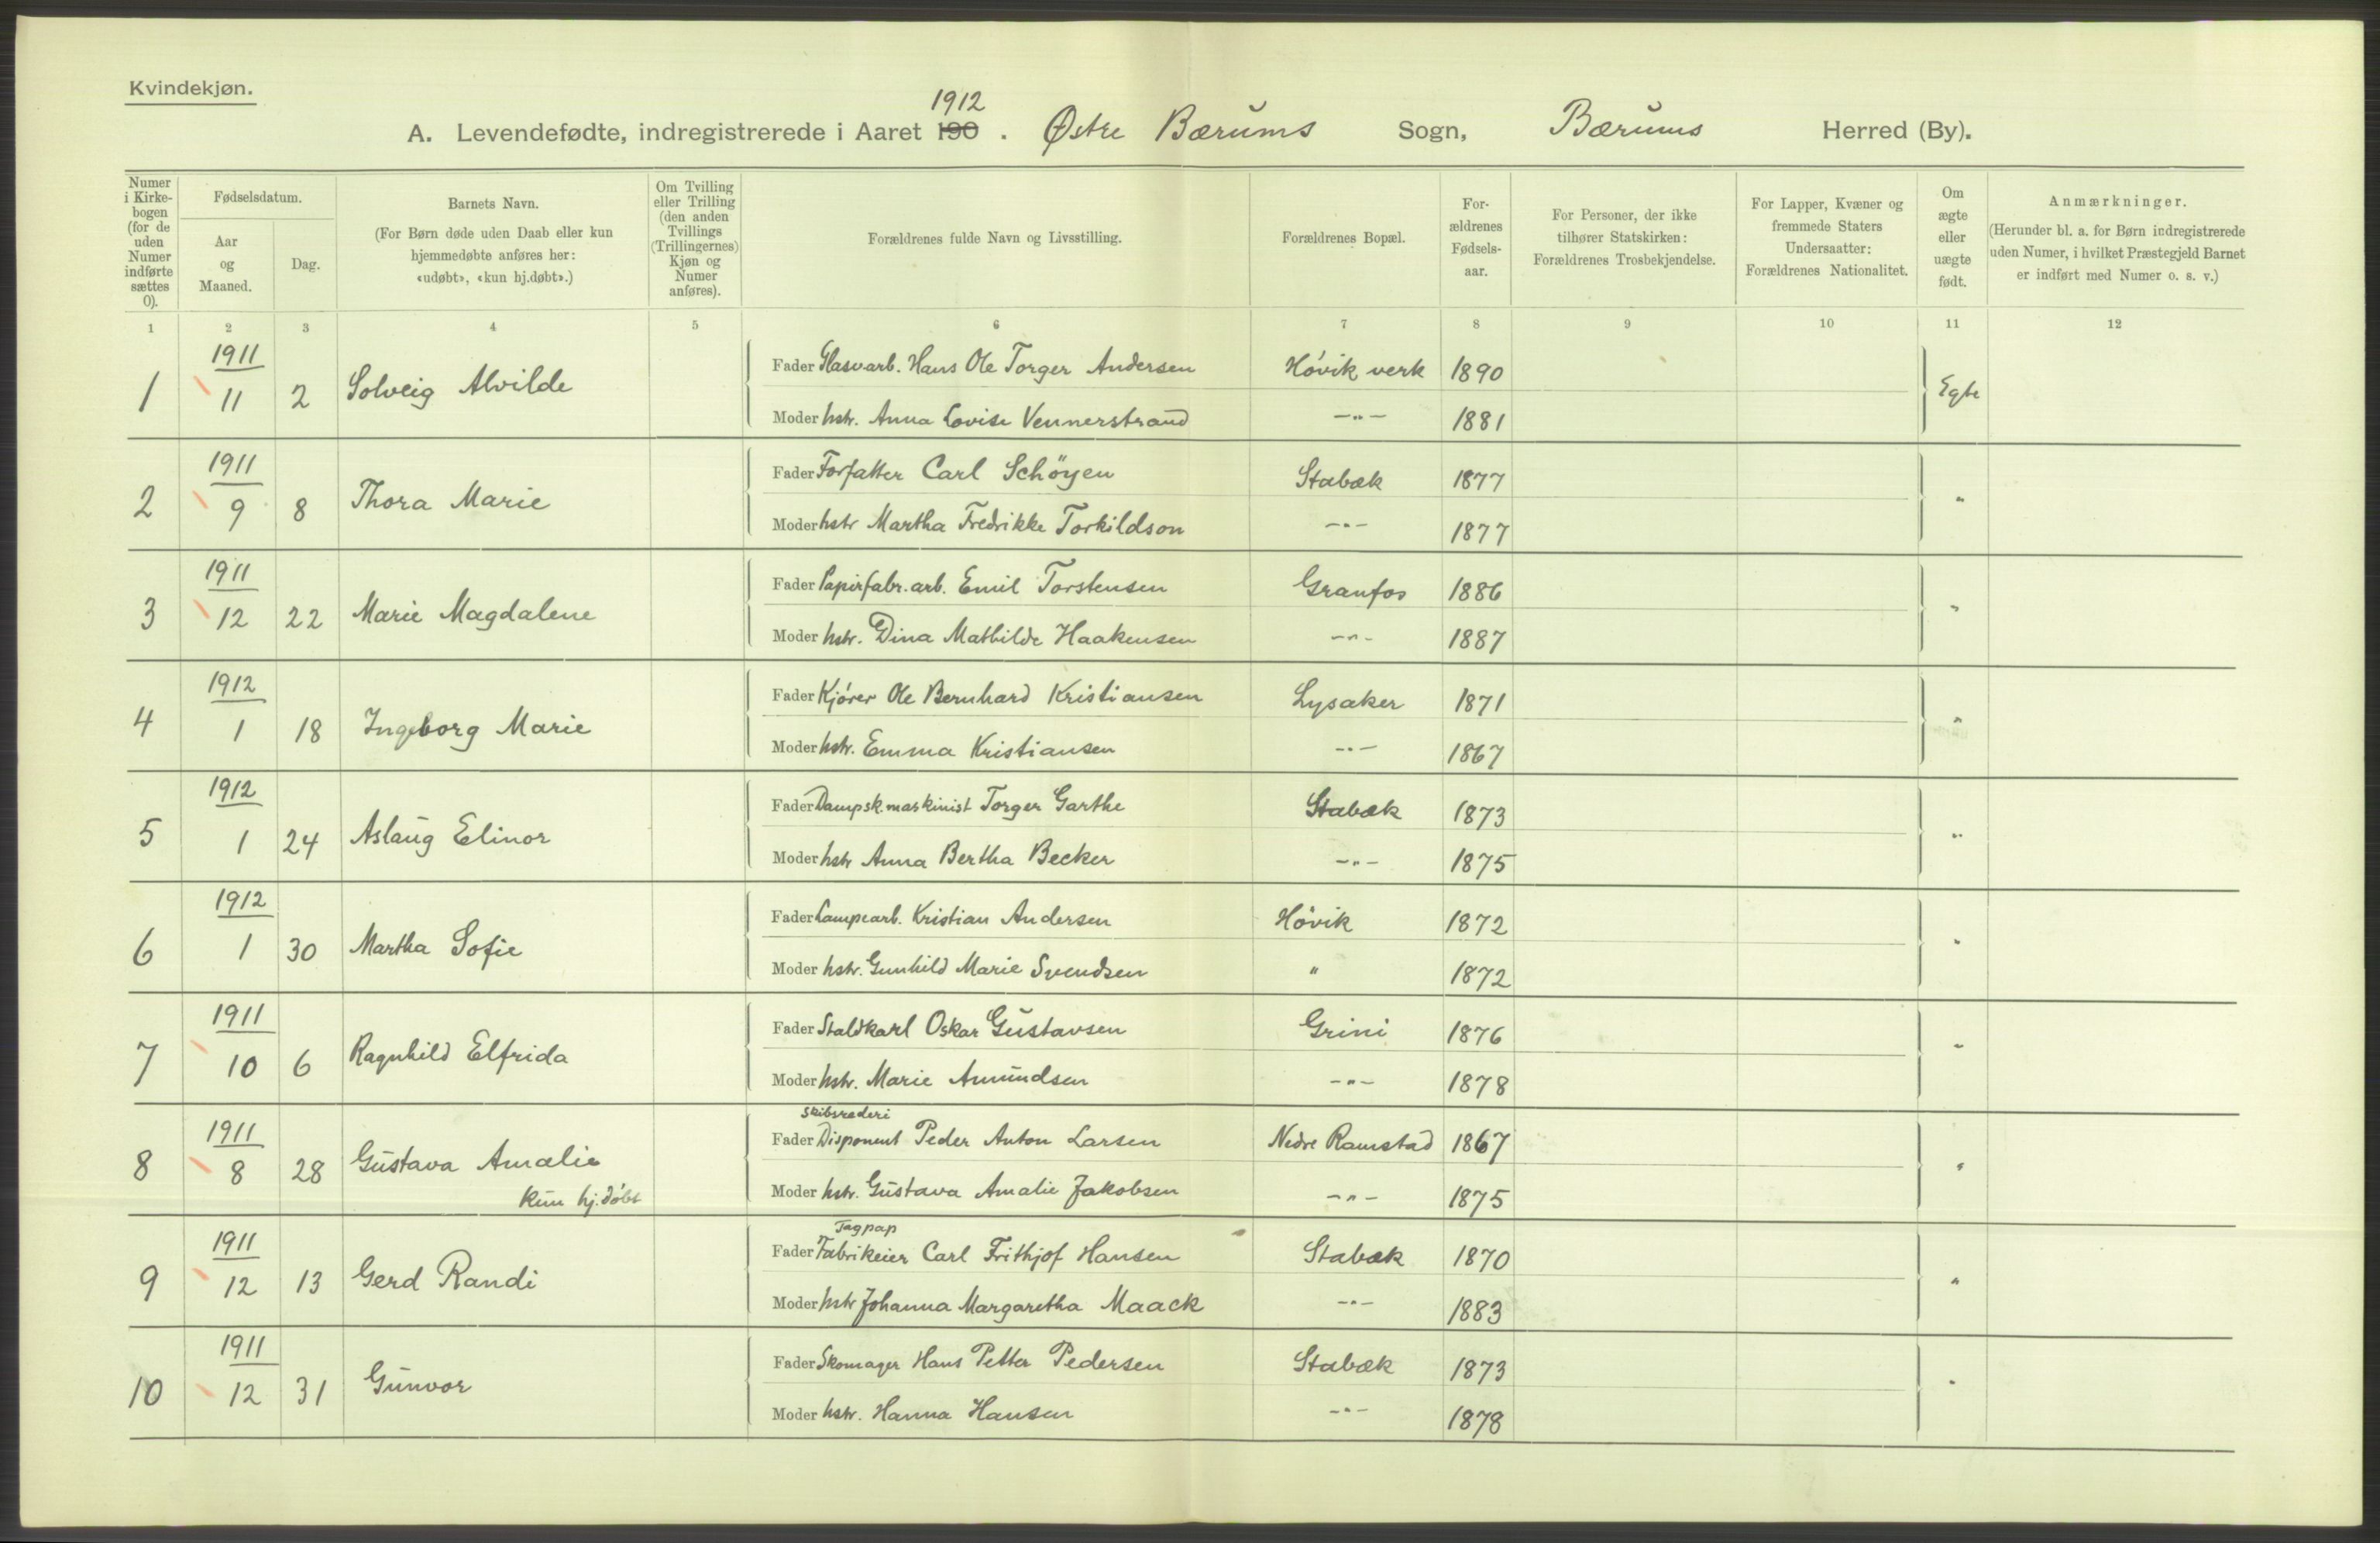 Kvindekjøn.
1912
A. Levendefødte, indregistrerede i Aaret 190 . Østre Bærums Sogn, Bærums Herred (By).
Numer i Kirke-bogen (for de uden Numer indførte sættes 0).
Fødselsdatum.
Aar og Maaned.
Dag.
Barnets Navn.
(For Børn døde uden Daab eller kun hjemmedøbte anføres her: «udøbt», «kun hj.døbt».)
Om Tvilling eller Trilling (den anden Tvillings (Trillingernes) Kjøn og Numer anføres).
Forældrenes fulde Navn og Livsstilling.
Forældrenes Bopæl.
For-ældrenes Fødsels-aar.
For Personer, der ikke tilhører Statskirken: Forældrenes Trosbekjendelse.
For Lapper, Kvæner og fremmede Staters Undersaatter: Forældrenes Nationalitet.
Om ægte eller uægte født.
Anmærkninger.
(Herunder bl. a. for Børn indregistrerede uden Numer, i hvilket Præstegjeld Barnet er indført med Numer o. s. v.)
1 2 3 4 5 6 7 8 9 10 11 12
1911
1 11 2 Solveig Alvilde
Fader Glasvarb. Hans Ole Torger Andersen Høvik verk 1890 Egte
Moder hstr. Anna Lovise Vennerstrand —"— 1881
1911
2 9 8 Thora Marie
Fader Forfatter Carl Schöyen Stabæk 1877 "
Moder hstr Martha Fredrikke Torkildson —"— 1877
1911
3 12 22 Marie Magdalene
Fader Papirfabr.arb. Emil Torstensen Granfos 1886 "
Moder hstr. Dina Mathilde Haakensen —"— 1887
1912
4 1 18 Ingeborg Marie
Fader Kjører Ole Bernhard Kristiansen Lysaker 1871 "
Moder hstr. Emma Kristiansen —"— 1867
1912
5 1 24 Aslaug Elinor
Fader Dampsk.maskinist Torger Garthe Stabæk 1873 "
Moder hstr Anna Bertha Becker —"— 1875
1912
6 1 30 Martha Sofie
Fader Lampearb. Kristian Andersen Høvik 1872 "
Moder hstr. Gunhild Marie Svendsen " 1872
1911
7 10 6 Ragnhild Elfrida
Fader Staldkarl Oskar Gustavsen Grini 1876 "
Moder hstr. Marie Amundsen —"— 1878
1911
8 8 28 Gustava Amalie
kun hj.døbt
Skibsrederi
Fader Disponent Peder Anton Larsen Nedre Ramstad 1867 "
Moder hstr. Gustava Amalie Jakobsen —"— 1875
1911
9 12 13 Gerd Randi
Tagpap
Fader Fabrikeier Carl Frithjof Hansen Stabæk 1870 "
Moder hstr Johanna Margaretha Maack —"— 1883
1911
10 12 31 Gunvor
Fader Skomager Hans Petter Pedersen Stabæk 1873 "
Moder hstr. Hanna Hansen —"— 1878